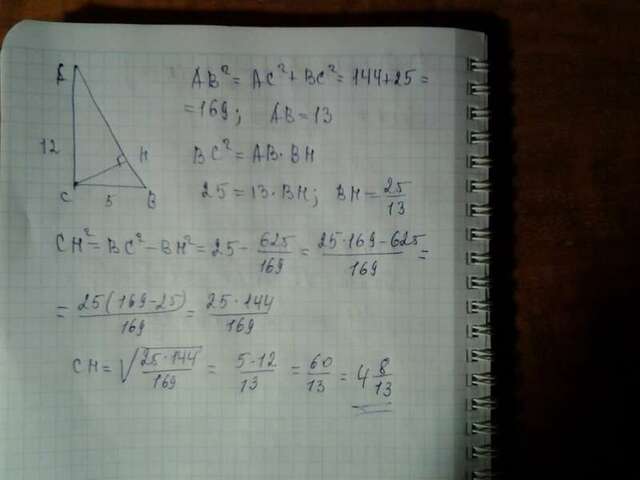 A
12
H
C
5
B
AB² = AC² + BC² = 144 + 25 =
= 169; AB = 13
BC² = AB · BH
25 = 13 · BH; BH = 25/13
CH² = BC² − BH² = 25 − 625/169 = (25 · 169 − 625)/169 =
= 25(169 − 25)/169 = (25 · 144)/169
CH = √((25 · 144)/169) = (5 · 12)/13 = 60/13 = 4 8/13